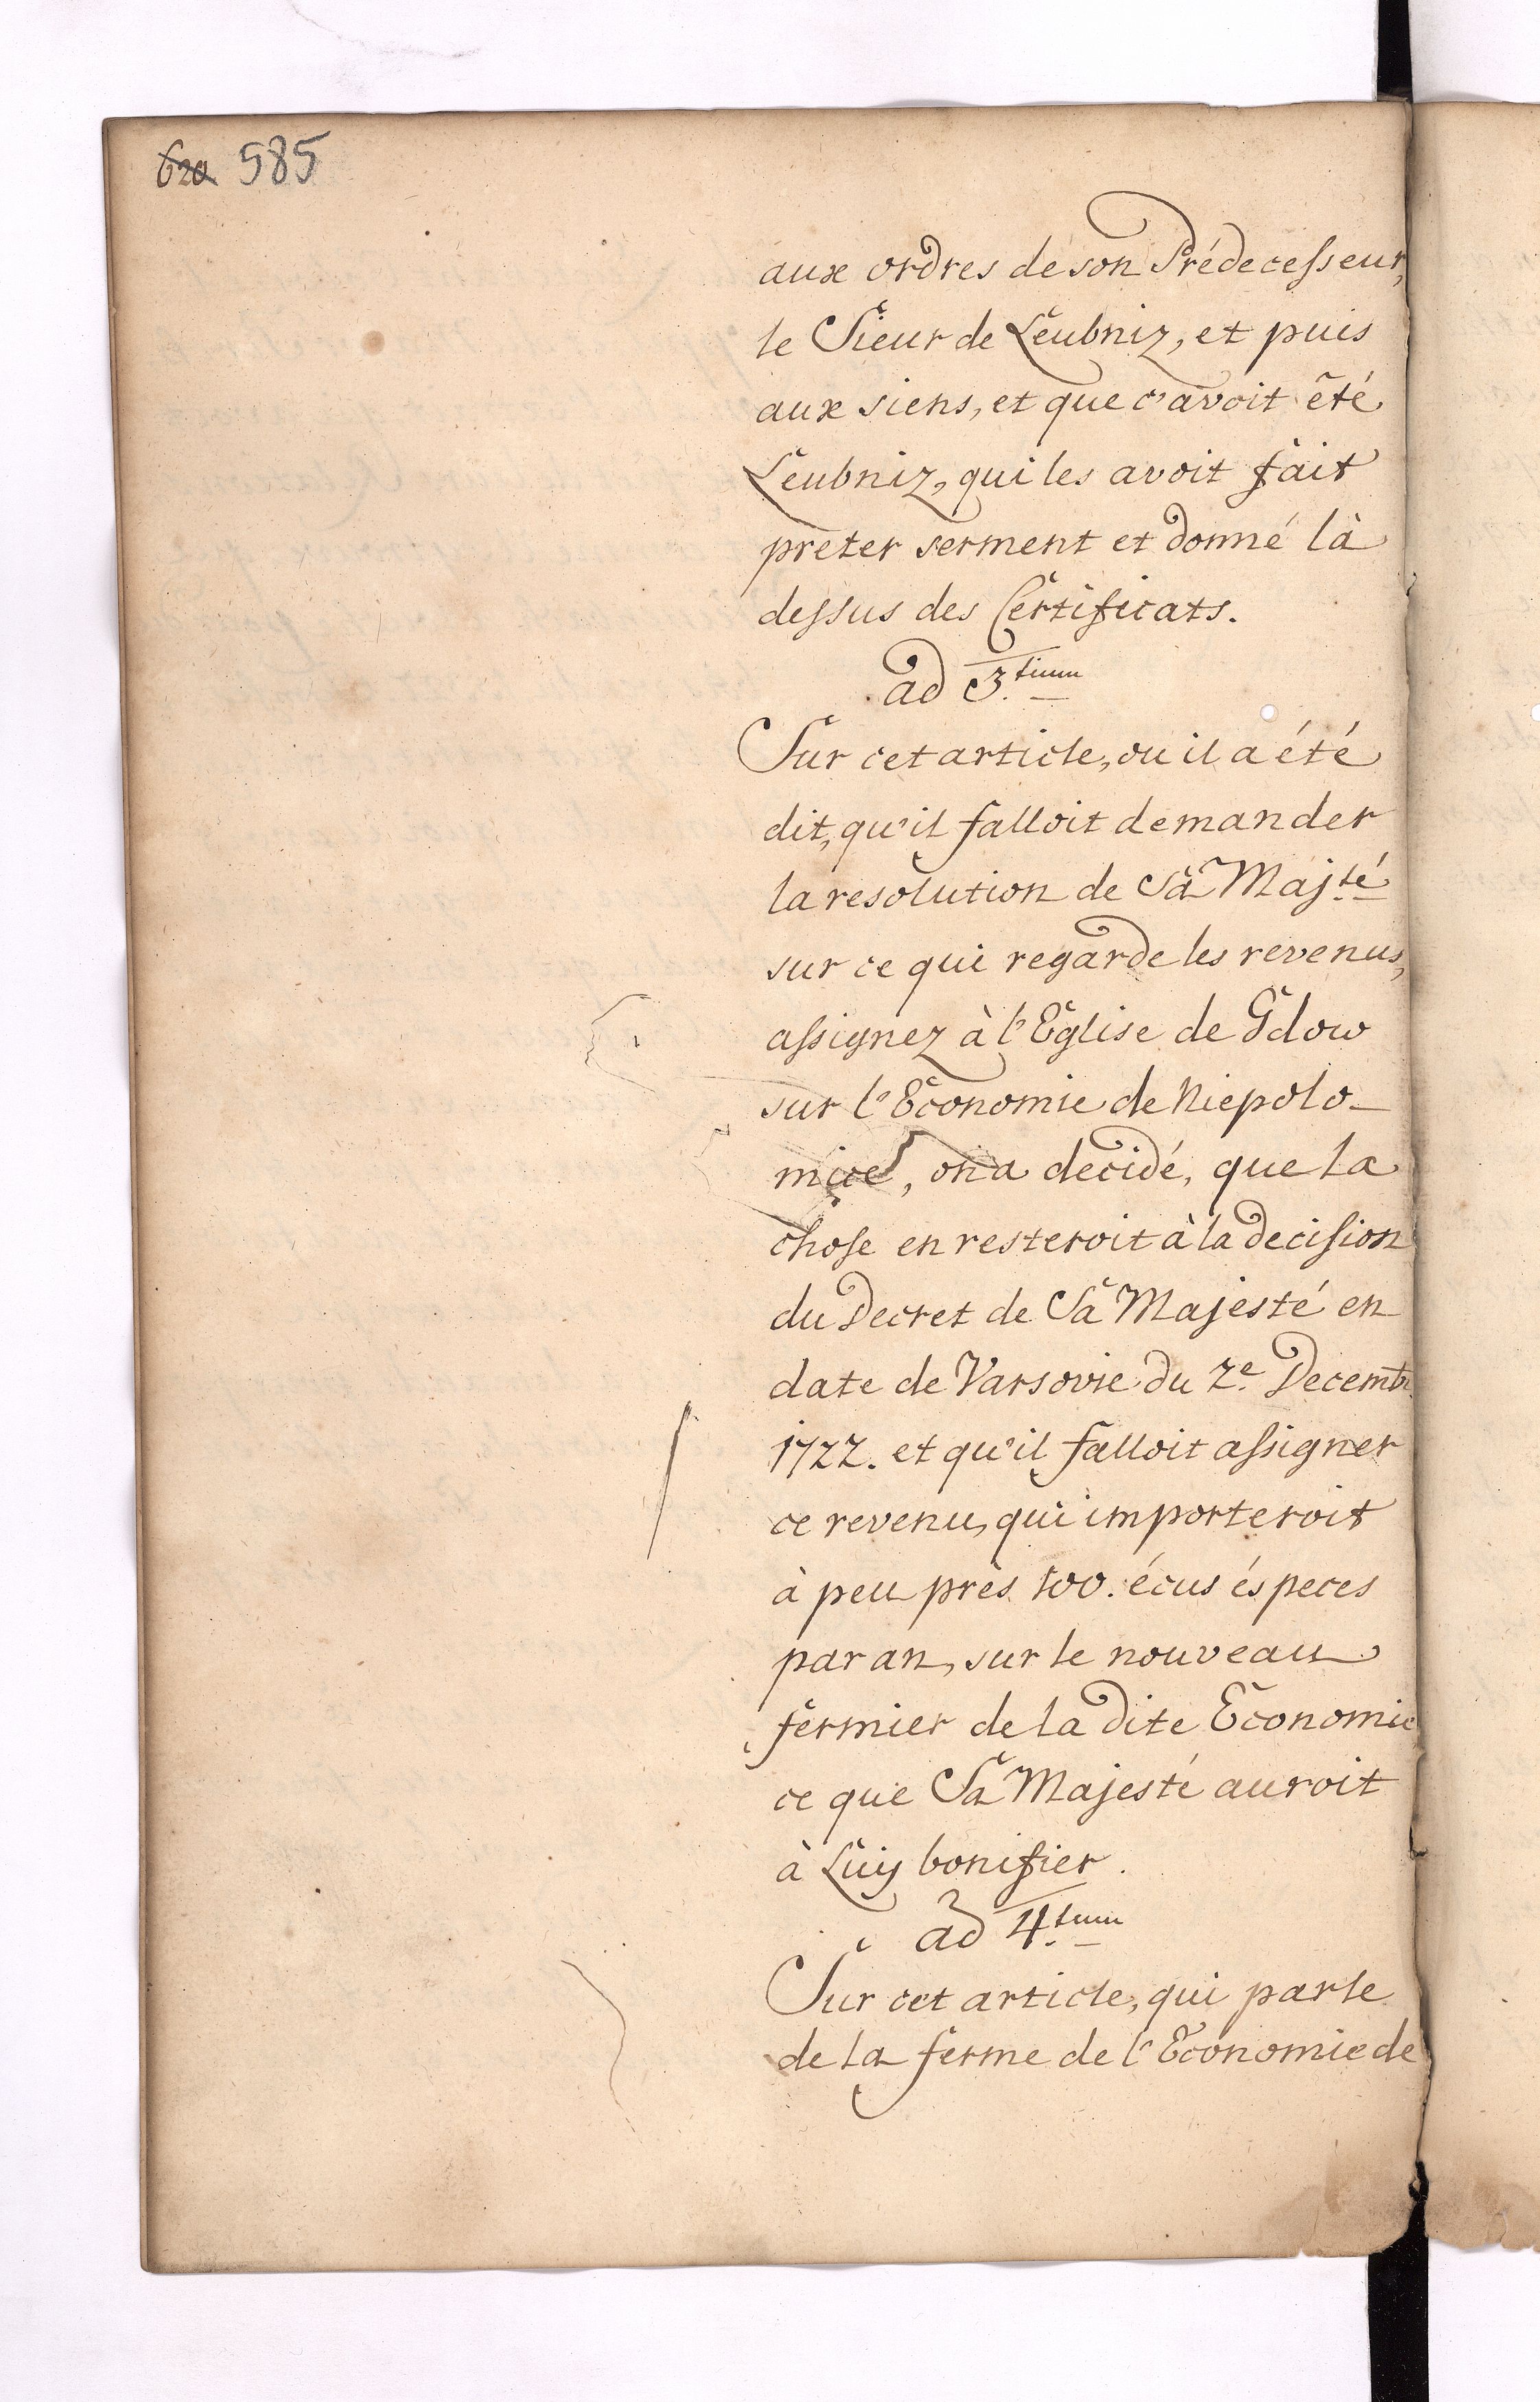 620 585
aux ordres de son Prédecesseur,
le Sieur de Leubniz, et puis
aux siens, et que c'avoit été
Leubniz, qui les avoit fait
preter serment et donné là
dessus des Certificats.
ad 3.tium
Sur cet article, ou il a été
dit, qu'il falloit demander
la resolution de Sa Maj.té
sur ce qui regarde les revenus,
assignez à l'Eglise de Gdow
sur l'Economie de Niepolo-
mice, on a decidé, que la
chose en resteroit à la decision
du Decret de Sa Majesté en
date de Varsovie du 2.e Decembr.
1722. et qu'il falloit assigner
ce revenu, qui importeroit
à peu près 100. écus éspeces
par an, sur le nouveau
fermier de la dite Economie
ce que Sa Majesté auroit
à Luy bonifier.
ad 4.tum
Sur cet article, qui parle
de la ferme de l'Economie de